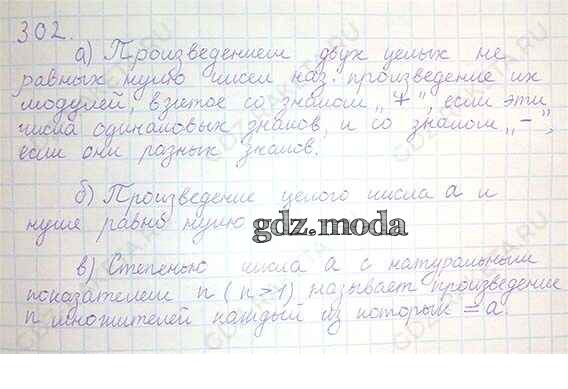 302.
а) Произведением двух целых не
равных нулю чисел наз. произведение их
модулей, взятое со знаком „+", если эти
числа одинаковых знаков, и со знаком „–",
если они разных знаков.
б) Произведение целого числа а и
нуля равно нулю
gdz.moda
в) Степенью числа а с натуральным
показателем n (n>1) называет произведение
n множителей каждый из которых = а.